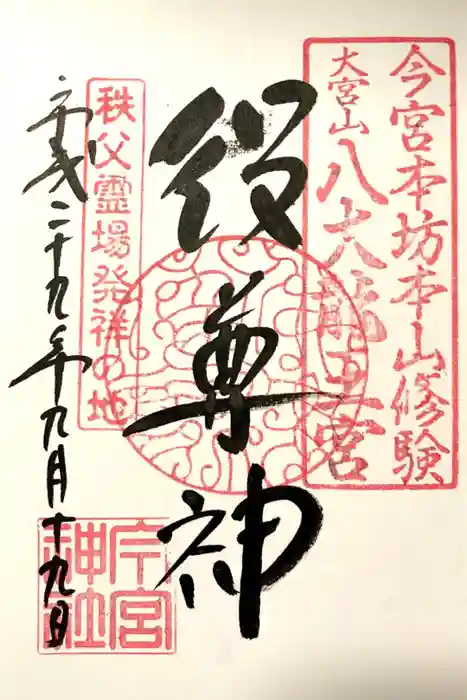 今宮本坊本山修験
大宮山
八大龍王宮
役尊神
秩父霊場発祥の地
平成二十九年九月十九日
今宮
神社